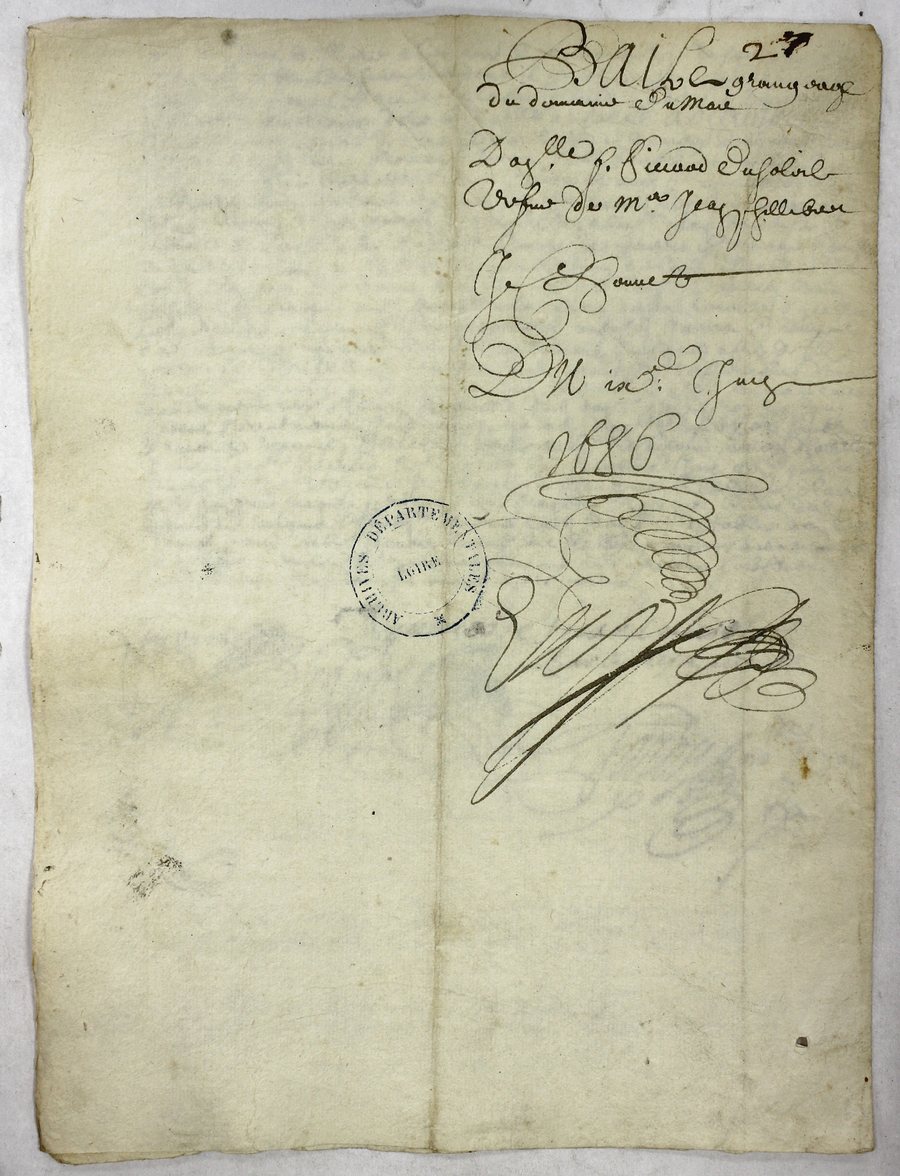 27
Bail de grangeage
du domaine du Mare
Dag.lle f. Picard du soleil
vefve de M.re Jean fillibert
Je Bonnet
Du ix.e Juin
1686
ARCHIVES DÉPARTEMENTALES
LOIRE